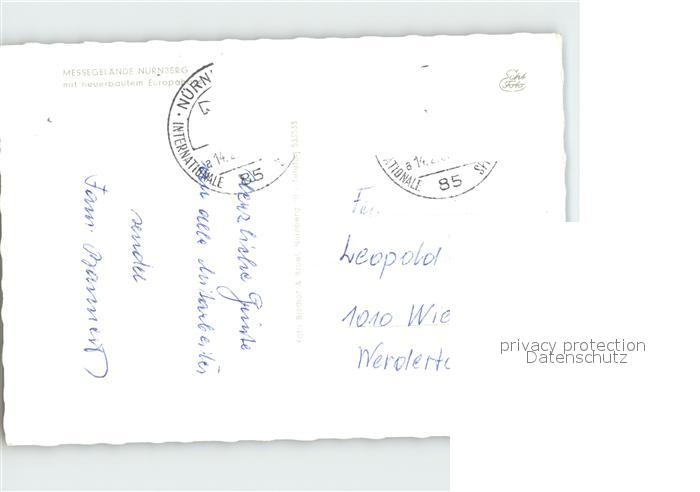 MESSEGELÄNDE NÜRNBERG
mit neuerbautem Europa
NÜRN
INTERNATIONALE
a 14.2.
85
ATIONALE
a 14.2.
85
Herzliche Grüße
an alle Mitarbeiter
sendet
Fam.
Leopold
1010 Wie
Werdert
privacy protection
Datenschutz